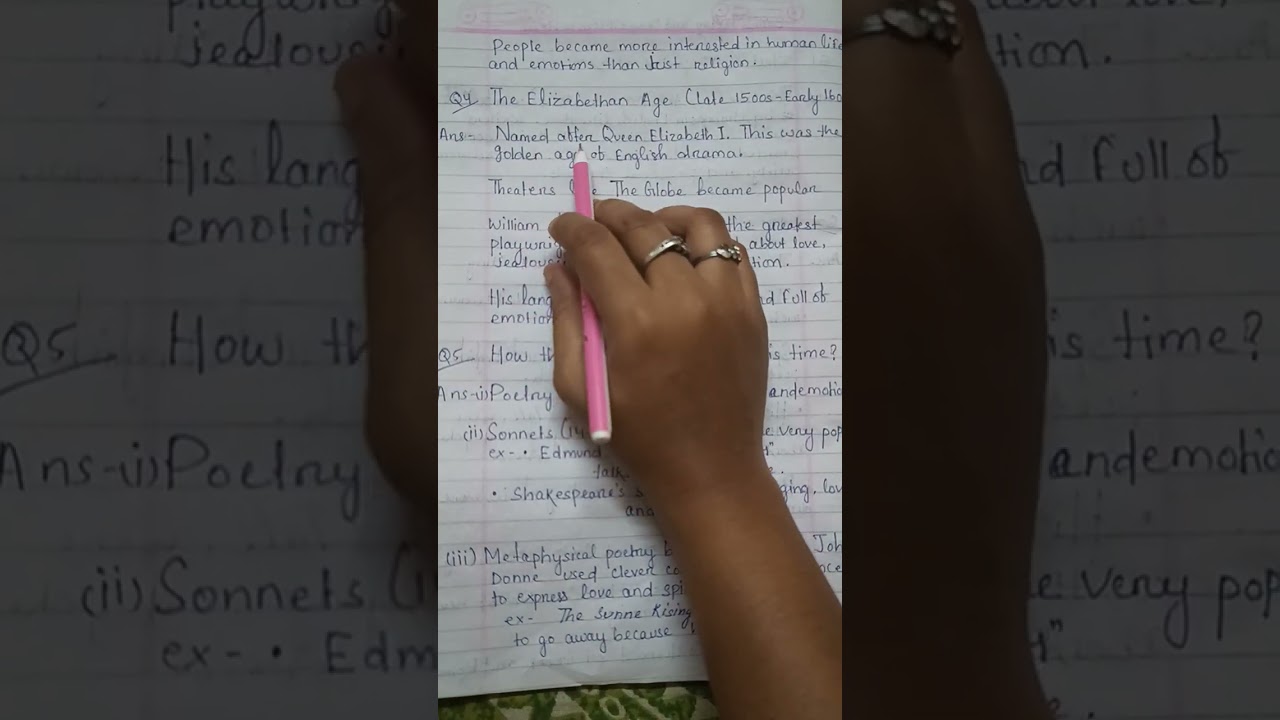 People became more interested in human life
and emotions than just religion.
Q4 The Elizabethan Age (Late 1500s - Early 160
Ans- Named after Queen Elizabeth I. This was the
golden age of English drama.
Theaters The Globe became popular
William the greatest
playwrig about love,
jealous tion.
His lang nd full of
emotion
Q5 How th is time?
Ans-(i) Poetry andemotio
(ii) Sonnets (14 e very pop
ex- • Edmund
talk
• Shakespeare's s ging, lov
and
(iii) Metaphysical poetry b Joh
Donne used clever co nce
to express love and spi
ex- The Sunne Rising
to go away because